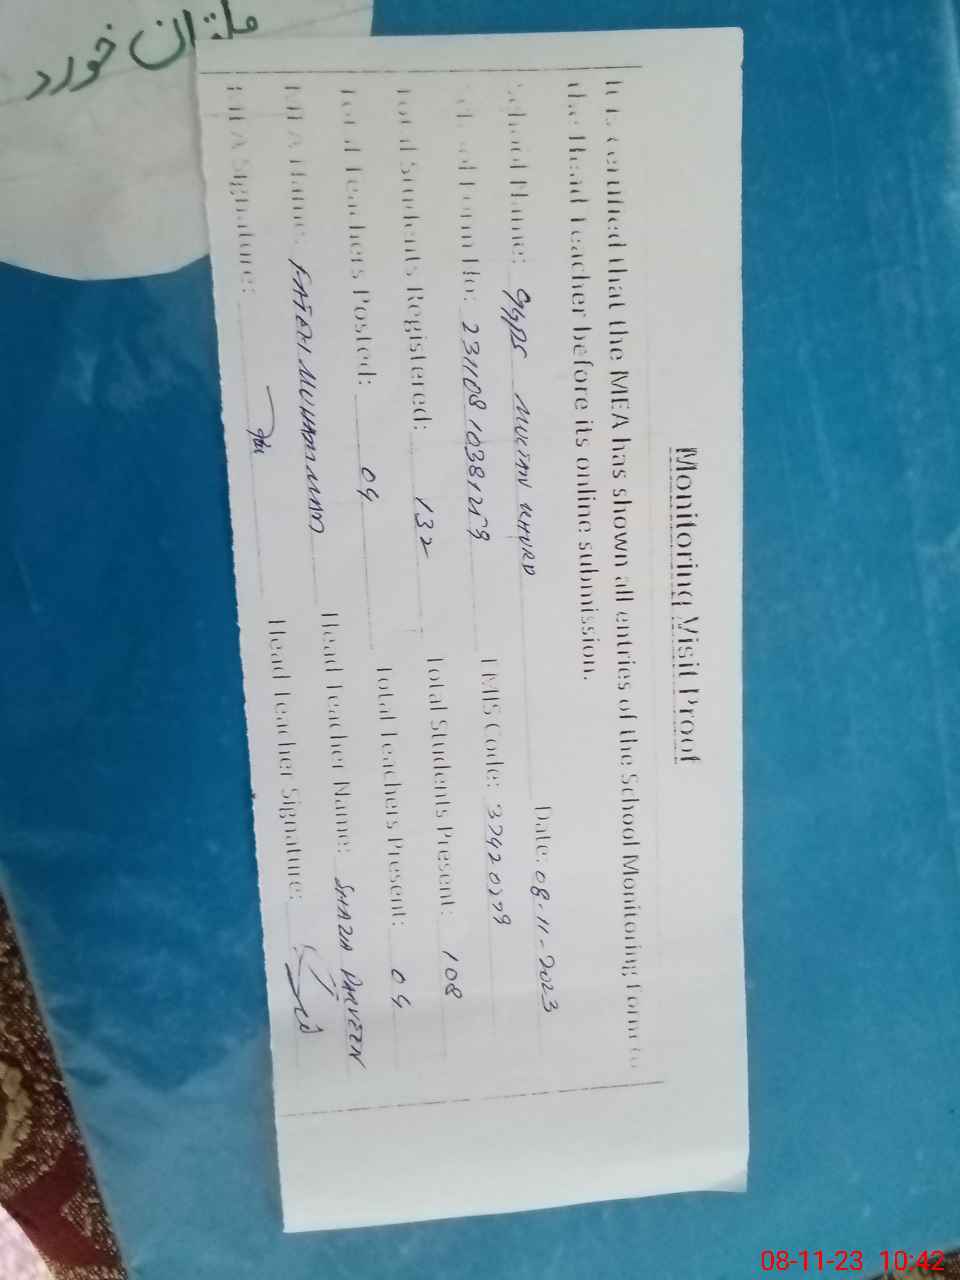 ملتان خورد
Monitoring Visit Proof
It is certified that the MEA has shown all entries of the School Monitoring Form to
the Head Teacher before its online submission.
School Name: GGPS MULTAN KHURD Date: 08-11-2023
School Form No: EMIS Code: 37420779
Total Students Registered: 132 Total Students Present: 108
Total Teachers Posted: 04 Total Teachers Present: 04
MEA Name: FATEH MUHAMMAD Head Teacher Name: SHAZIA PARVEEN
MEA Signature: Head Teacher Signature:
08-11-23 10:42